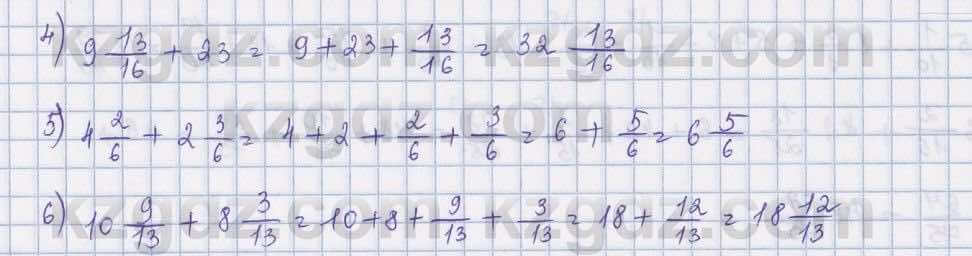 4) 9 13/16 + 23 = 9 + 23 + 13/16 = 32 13/16
5) 4 2/6 + 2 3/6 = 4 + 2 + 2/6 + 3/6 = 6 + 5/6 = 6 5/6
6) 10 9/13 + 8 3/13 = 10 + 8 + 9/13 + 3/13 = 18 + 12/13 = 18 12/13
kzgdz.com
kzgdz.com
kzgdz.com